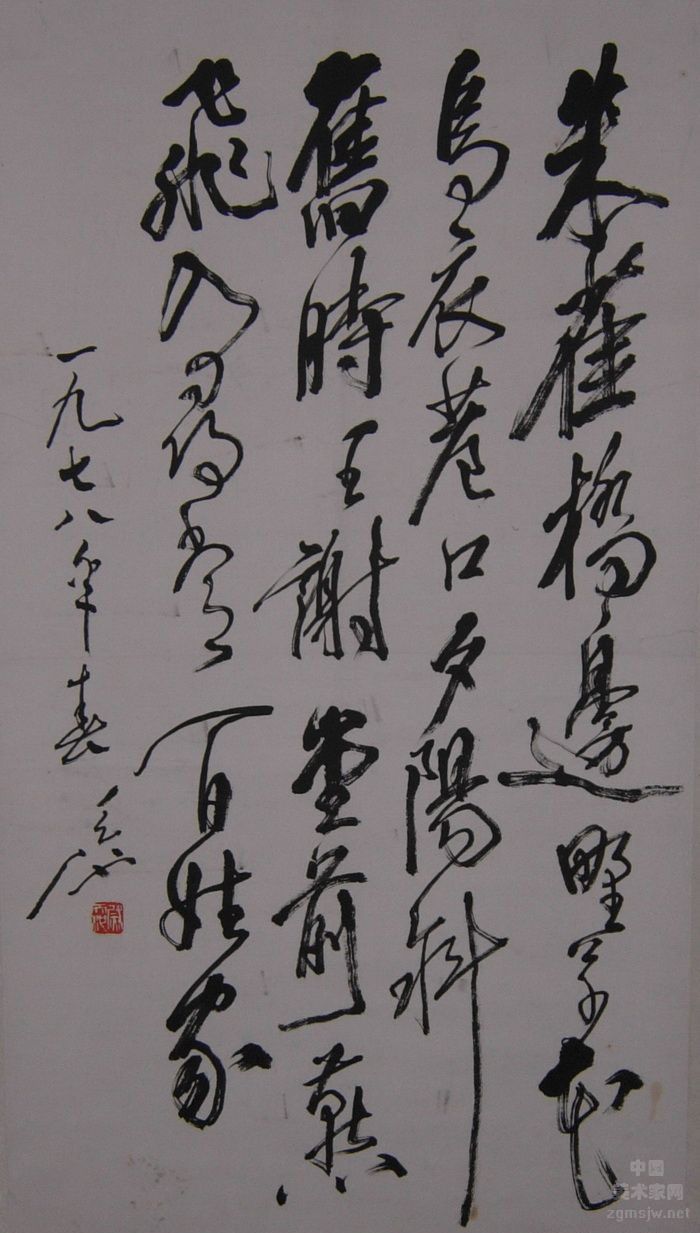 朱雀橋邊野草花
烏衣巷口夕陽斜
舊時王謝堂前燕
飛入尋常百姓家
一九七八年春
中国
美术家网
zgmsjw.net